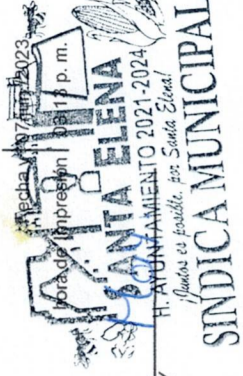 Fecha
2023
Hora de Impresión
p. m.
SANTA ELENA
H. AYUNTAMIENTO 2021-2024
¡Juntos es posible, por Santa Elena!
SINDICA MUNICIPAL